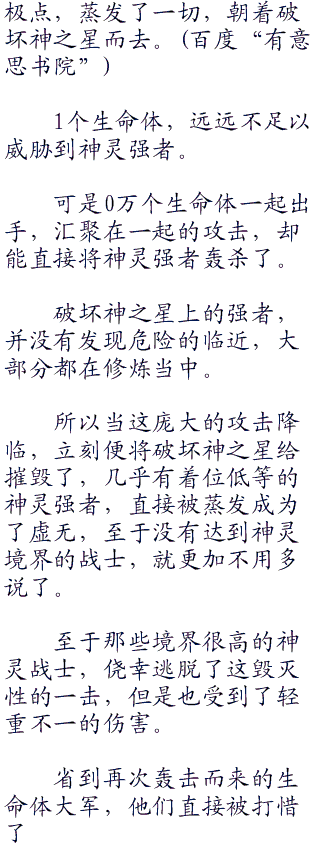 极点，蒸发了一切，朝着破
坏神之星而去。(百度“有意
思书院”)
1个生命体，远远不足以
威胁到神灵强者。
可是0万个生命体一起出
手，汇聚在一起的攻击，却
能直接将神灵强者轰杀了。
破坏神之星上的强者，
并没有发现危险的临近，大
部分都在修炼当中。
所以当这庞大的攻击降
临，立刻便将破坏神之星给
摧毁了，几乎有着位低等的
神灵强者，直接被蒸发成为
了虚无，至于没有达到神灵
境界的战士，就更加不用多
说了。
至于那些境界很高的神
灵战士，侥幸逃脱了这毁灭
性的一击，但是也受到了轻
重不一的伤害。
省到再次轰击而来的生
命体大军，他们直接被打惜
了